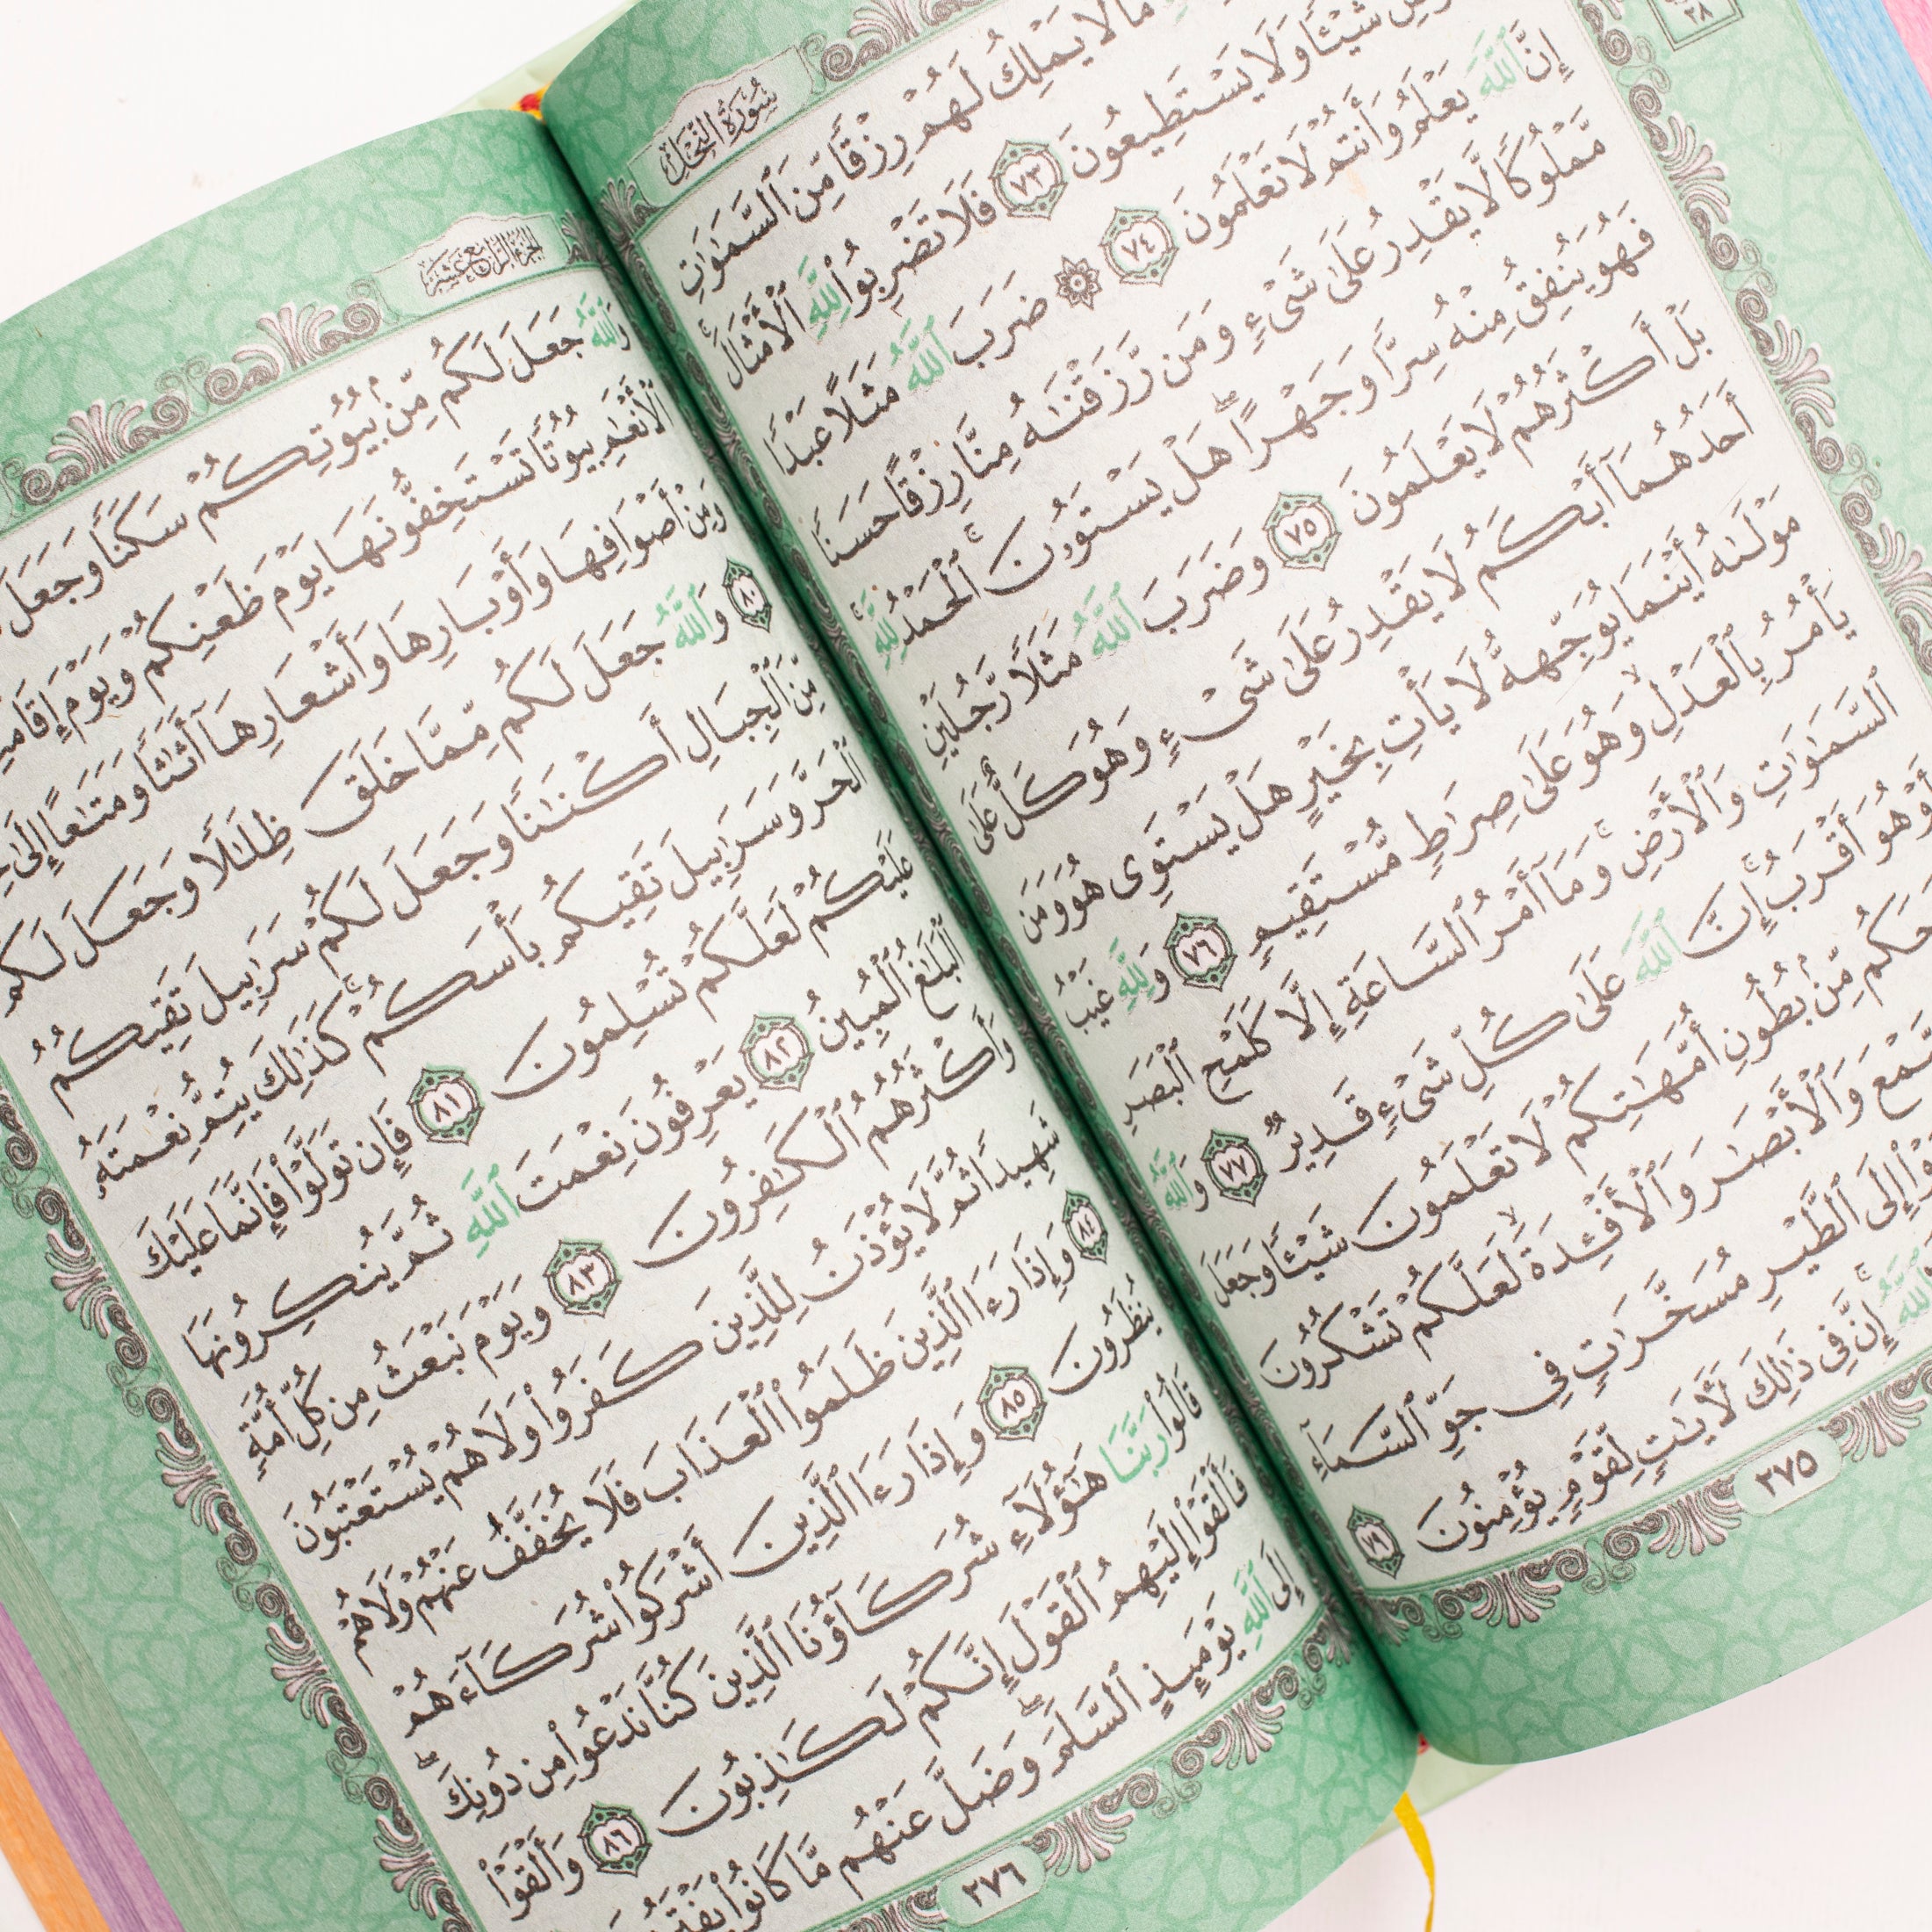 سُورَةُ النَّحْلِ
٢٨
مَا لَا يَمْلِكُ لَهُمْ رِزْقًا مِّنَ ٱلسَّمَٰوَٰتِ
شَيْـًٔا وَلَا يَسْتَطِيعُونَ ٧٣ فَلَا تَضْرِبُوا۟ لِلَّهِ ٱلْأَمْثَالَ ۚ
إِنَّ ٱللَّهَ يَعْلَمُ وَأَنتُمْ لَا تَعْلَمُونَ ٧٤ ۞ ضَرَبَ ٱللَّهُ مَثَلًا عَبْدًا
مَّمْلُوكًا لَّا يَقْدِرُ عَلَىٰ شَىْءٍ وَمَن رَّزَقْنَٰهُ مِنَّا رِزْقًا حَسَنًا
فَهُوَ يُنفِقُ مِنْهُ سِرًّا وَجَهْرًا ۖ هَلْ يَسْتَوُۥنَ ۚ ٱلْحَمْدُ لِلَّهِ ۚ
بَلْ أَكْثَرُهُمْ لَا يَعْلَمُونَ ٧٥ وَضَرَبَ ٱللَّهُ مَثَلًا رَّجُلَيْنِ
أَحَدُهُمَآ أَبْكَمُ لَا يَقْدِرُ عَلَىٰ شَىْءٍ وَهُوَ كَلٌّ عَلَىٰ
مَوْلَىٰهُ أَيْنَمَا يُوَجِّههُّ لَا يَأْتِ بِخَيْرٍ هَلْ يَسْتَوِى هُوَ وَمَن
يَأْمُرُ بِٱلْعَدْلِ ۙ وَهُوَ عَلَىٰ صِرَٰطٍ مُّسْتَقِيمٍ ٧٦ وَلِلَّهِ غَيْبُ
ٱلسَّمَٰوَٰتِ وَٱلْأَرْضِ ۚ وَمَآ أَمْرُ ٱلسَّاعَةِ إِلَّا كَلَمْحِ ٱلْبَصَرِ
أَوْ هُوَ أَقْرَبُ ۚ إِنَّ ٱللَّهَ عَلَىٰ كُلِّ شَىْءٍ قَدِيرٌ ٧٧ وَٱللَّهُ
مِّنۢ بُطُونِ أُمَّهَٰتِكُمْ لَا تَعْلَمُونَ شَيْـًٔا وَجَعَلَ
وَٱلْأَبْصَٰرَ وَٱلْأَفْـِٔدَةَ ۙ لَعَلَّكُمْ تَشْكُرُونَ
إِلَى ٱلطَّيْرِ مُسَخَّرَٰتٍ فِى جَوِّ ٱلسَّمَآءِ
ٱللَّهُ ۚ إِنَّ فِى ذَٰلِكَ لَـَٔايَٰتٍ لِّقَوْمٍ يُؤْمِنُونَ ٧٩
٢٧٥
الجُزْءُ الرَّابِعَ عَشَرَ
وَٱللَّهُ جَعَلَ لَكُم مِّنۢ بُيُوتِكُمْ سَكَنًا وَجَعَلَ
ٱلْأَنْعَٰمِ بُيُوتًا تَسْتَخِفُّونَهَا يَوْمَ ظَعْنِكُمْ وَيَوْمَ
وَمِنْ أَصْوَافِهَا وَأَوْبَارِهَا وَأَشْعَارِهَآ أَثَٰثًا وَمَتَٰعًا إِلَىٰ
٨٠ وَٱللَّهُ جَعَلَ لَكُم مِّمَّا خَلَقَ ظِلَٰلًا وَجَعَلَ لَكُم
مِّنَ ٱلْجِبَالِ أَكْنَٰنًا وَجَعَلَ لَكُمْ سَرَٰبِيلَ تَقِيكُمُ
ٱلْحَرَّ وَسَرَٰبِيلَ تَقِيكُم بَأْسَكُمْ ۚ كَذَٰلِكَ يُتِمُّ نِعْمَتَهُۥ
عَلَيْكُمْ لَعَلَّكُمْ تُسْلِمُونَ ٨١ فَإِن تَوَلَّوْا۟ فَإِنَّمَا عَلَيْكَ
ٱلْبَلَٰغُ ٱلْمُبِينُ ٨٢ يَعْرِفُونَ نِعْمَتَ ٱللَّهِ ثُمَّ يُنكِرُونَهَا
وَأَكْثَرُهُمُ ٱلْكَٰفِرُونَ ٨٣ وَيَوْمَ نَبْعَثُ مِن كُلِّ أُمَّةٍ
شَهِيدًا ثُمَّ لَا يُؤْذَنُ لِلَّذِينَ كَفَرُوا۟ وَلَا هُمْ يُسْتَعْتَبُونَ
٨٤ وَإِذَا رَءَا ٱلَّذِينَ ظَلَمُوا۟ ٱلْعَذَابَ فَلَا يُخَفَّفُ عَنْهُمْ وَلَا هُمْ
يُنظَرُونَ ٨٥ وَإِذَا رَءَا ٱلَّذِينَ أَشْرَكُوا۟ شُرَكَآءَهُمْ
قَالُوا۟ رَبَّنَا هَٰٓؤُلَآءِ شُرَكَآؤُنَا ٱلَّذِينَ كُنَّا نَدْعُوا۟ مِن دُونِكَ ۖ
فَأَلْقَوْا۟ إِلَيْهِمُ ٱلْقَوْلَ إِنَّكُمْ لَكَٰذِبُونَ ٨٦ وَأَلْقَوْا۟
إِلَى ٱللَّهِ يَوْمَئِذٍ ٱلسَّلَمَ ۖ وَضَلَّ عَنْهُم مَّا كَانُوا۟
٢٧٦